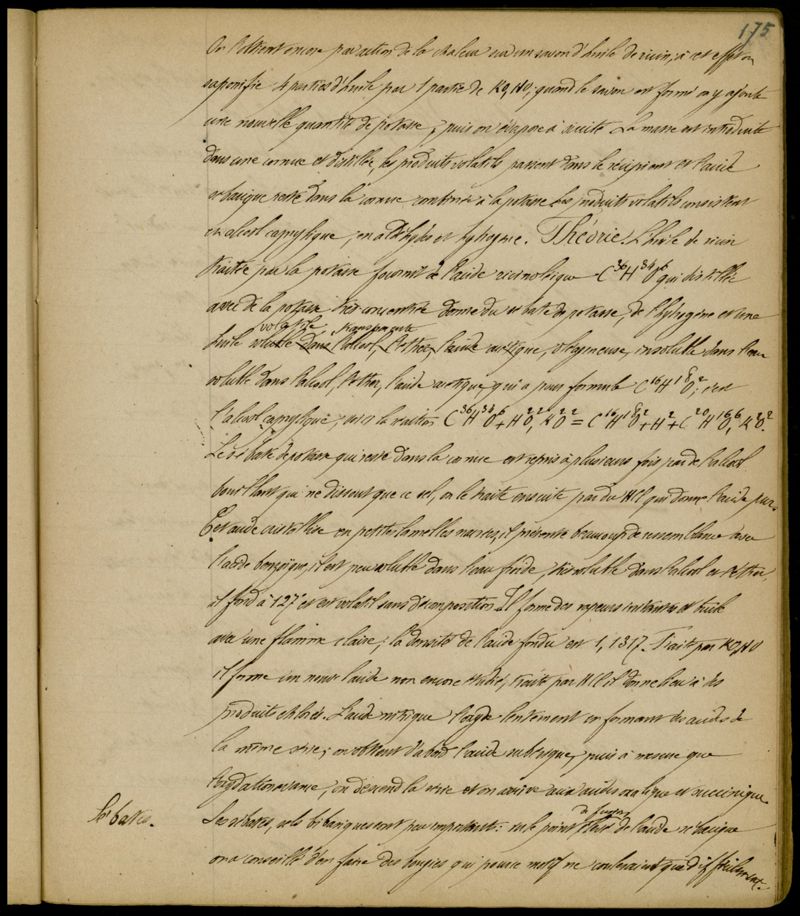 175
On l'obtient encore par action de la chaleur sur un savon d'huile de ricin; à cet effet on
saponifie 4 parties d'huile par 1 partie de KO,HO; quand le savon est formé on y ajoute
une nouvelle quantité de potasse, puis on évapore à siccité. La masse est introduite
dans une cornue et distillée, les produits volatils passent dans le récipient et l'acide
sébacique reste dans la cornue combiné à la potasse. Les produits volatils consistent
en alcool caprylique, en aldéhydes et hydrogène. Théorie. L'huile de ricin
traitée par la potasse fournit de l'acide ricinolique C36H34O6 qui distillé
avec de la potasse très concentrée donne du sébate de potasse, de l'hydrogène et une
volatile transparente
huile soluble dans l'alcool, l'éther, l'acide acétique, oléagineuse, insoluble dans l'eau
soluble dans l'alcool, l'éther, l'acide acétique, qui a pour formule C16H18O2; c'est
l'alcool caprylique; voici la réaction C36H34O6 + H2O2, K2O2 = C16H18O2 + H2 + C20H16O6, K2O2.
Le sébate de potasse qui reste dans la cornue est repris à plusieurs fois par de l'alcool
bouillant qui ne dissout que ce sel, on le traite ensuite par du HCl qui donne l'acide pur.
Cet acide cristallise en petites lamelles nacrées, il présente beaucoup de ressemblance avec
l'acide benzoïque, il est peu soluble dans l'eau froide, très soluble dans l'alcool et l'éther,
il fond à 127° et est volatil sans décomposition. Il forme des vapeurs irritantes et brûle
avec une flamme claire; la densité de l'acide fondu est 1,1317. Traité par KO,HO
il forme un nouvel acide non encore étudié, traité par HCl il donne lieu à des
produits chlorés. L'acide nitrique l'oxyde lentement en formant des acides de
la même série; on obtient d'abord l'acide subérique, puis à mesure que
l'oxydation avance, on descend la série et on arrive aux acides oxalique et succinique.
Sébates.
Les sébates, sels bibasiques sont peu importants: vu le point de fusion élevé de l'acide sébacique
on a conseillé d'en faire des bougies qui pour ce motif ne couleraient que difficilement.